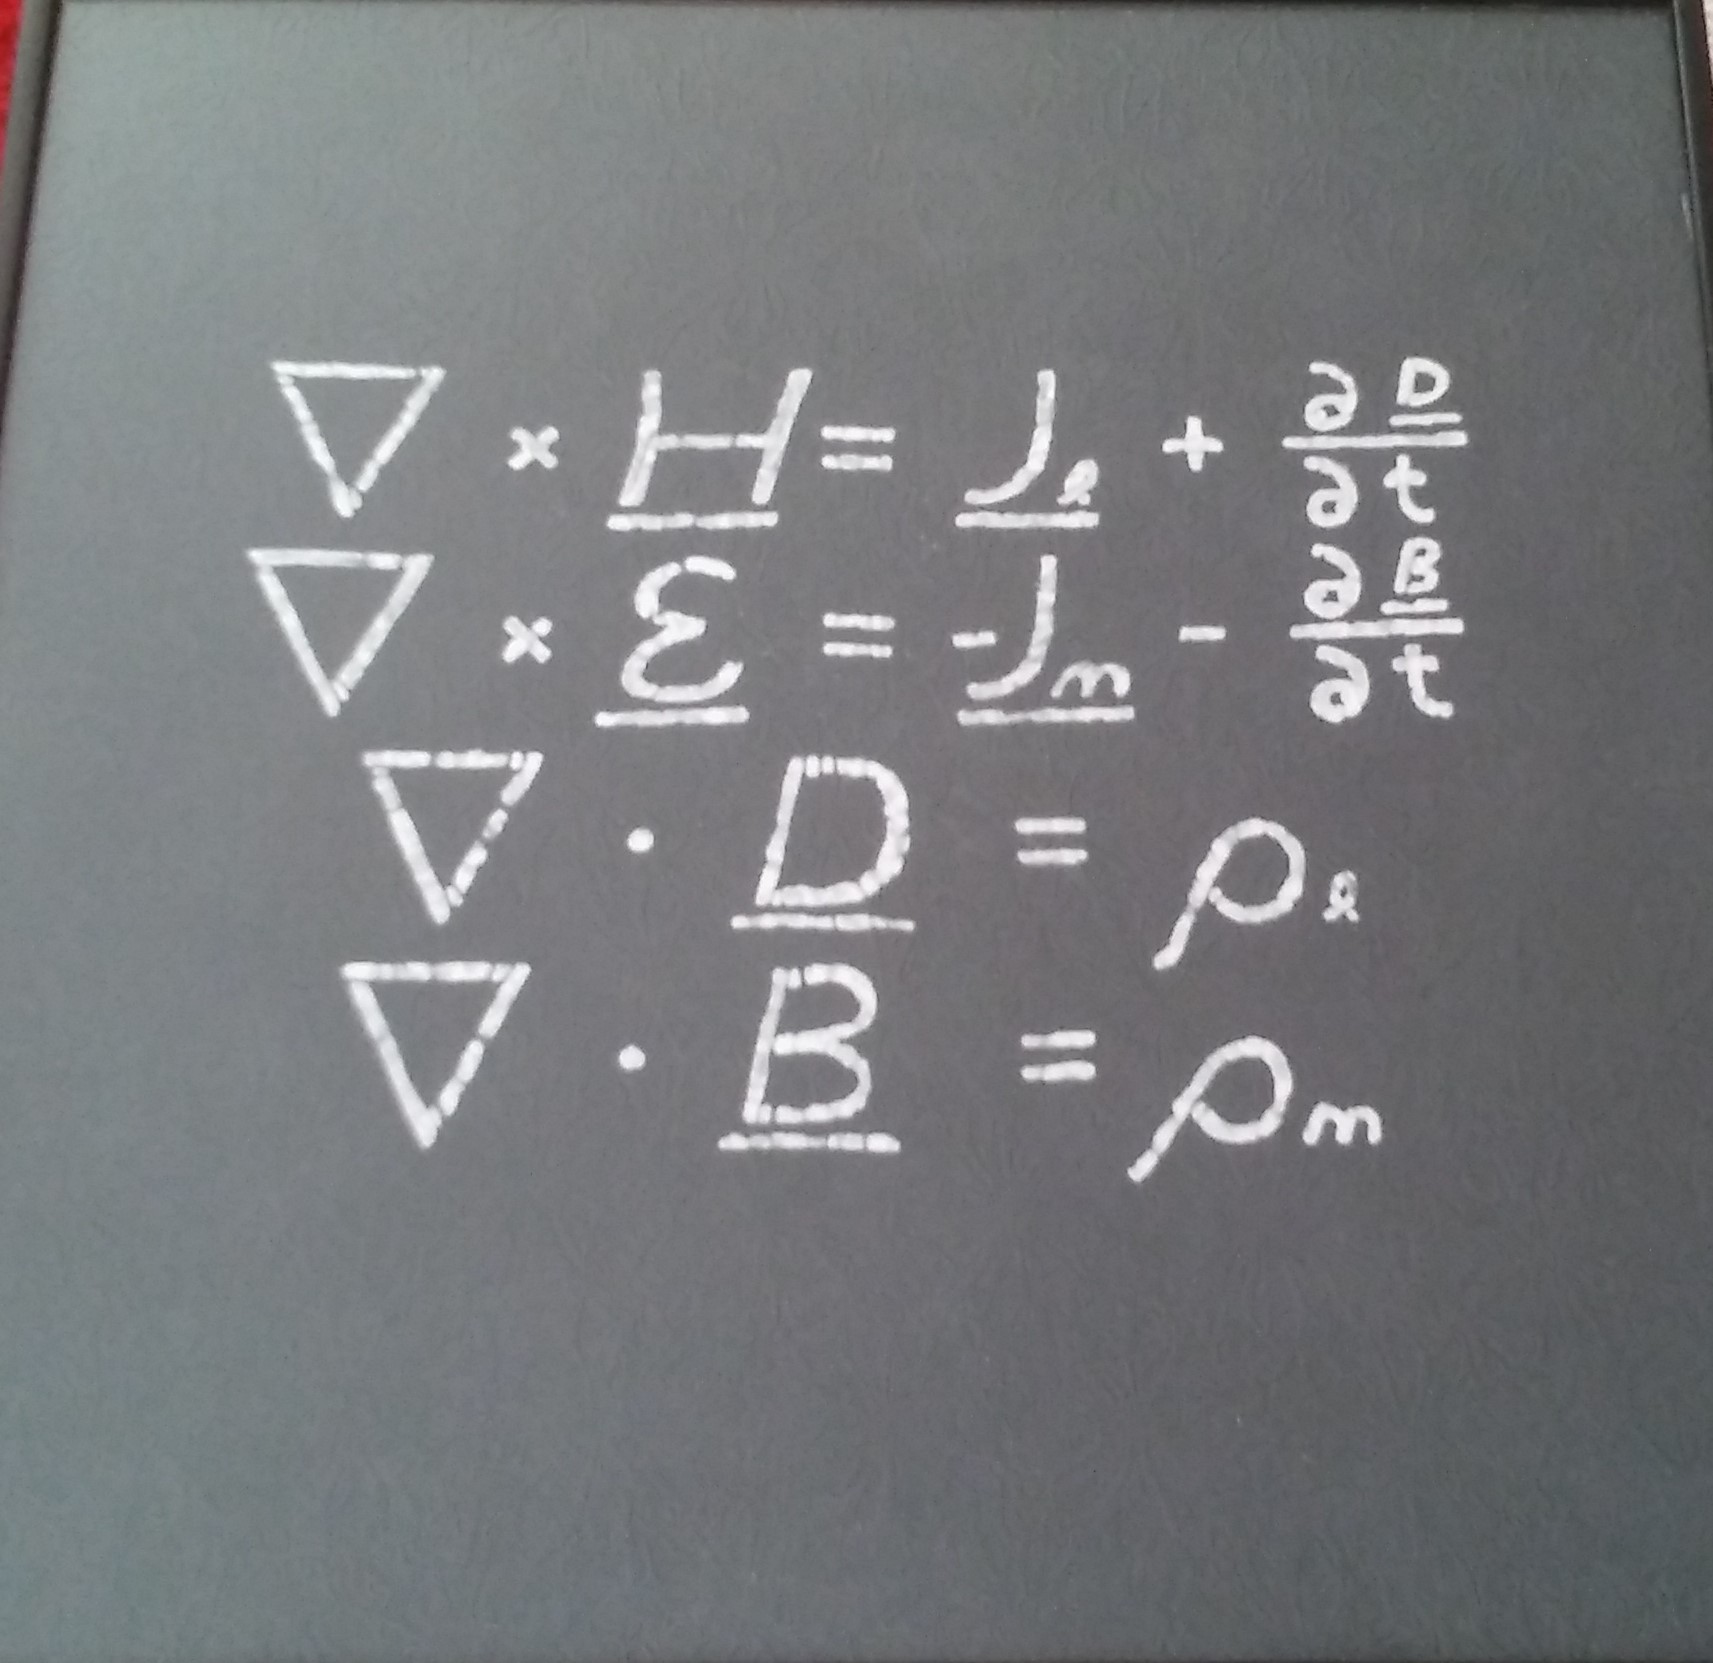 ∇ × H̲ = J̲ₑ + ∂D̲/∂t
∇ × ℰ̲ = -J̲ₘ - ∂B̲/∂t
∇ · D̲ = ρₑ
∇ · B̲ = ρₘ